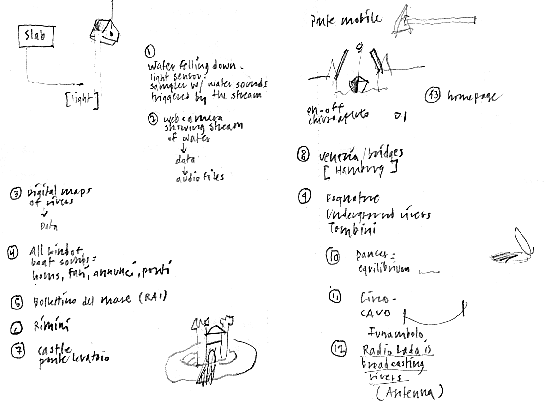 Slab
[light]
①
water falling down -
light sensor
sampler w/ water sounds
triggered by the stream
② web camera
showing stream
of water
data
audio files
③ Digital maps
of rivers
Data
④ All kind of
boat sounds =
horns, fari, annunci, ponti
⑤ Bollettino del mare (RAI)
⑥ Rimini
⑦ castle
ponte levatoio
Ponte mobile
on-off
chiuso aperto 01
⑬ homepage
⑧ venezia/bridges
[Hamburg]
⑨ Fognature
Underground rivers
Tombini
⑩ Dance =
equilibrium
⑪ Circo -
CAVO
Funambolo
⑫ Radio Lada is
broadcasting
rivers
(Antenna)